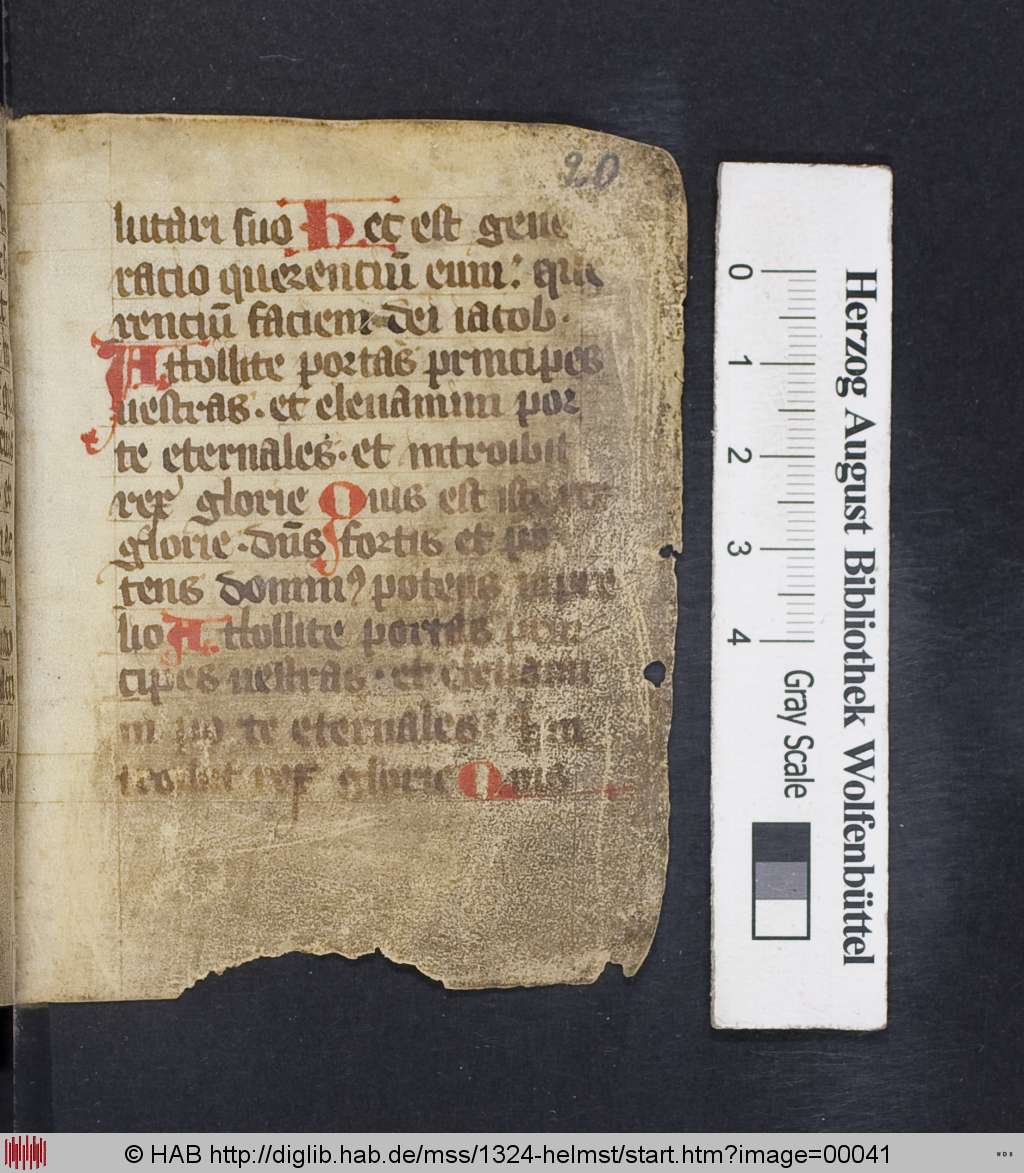 20
lutari suo hec est gene
racio querenciū eum: que
renciū faciem dei iacob.
Attollite portas principes
uestras. et eleuamini por
te eternales. et introibit
rex glorie Quis est iste rex
glorie. dn̄s fortis et po
tens dominꝰ potens in pre
lio Attollite portas prin
cipes uestras. et eleuami
ni por te eternales: et in
troibit rex glorie Quis
0 1 2 3 4
Gray Scale
Herzog August Bibliothek Wolfenbüttel
© HAB http://diglib.hab.de/mss/1324-helmst/start.htm?image=00041